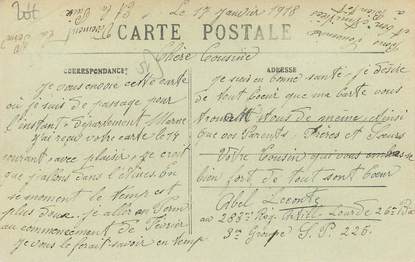 Le 17 Janvier 1918
CARTE POSTALE
Chère Cousine
CORRESPONDANCE
ADRESSE
je vous envoie cette carte
où je suis de passage pour
l'instant département Marne
J'ai reçu votre carte le 14
courant avec plaisir, je croit
que j'allons dans l'Aisne. En
se moment le temps est
plus doux. je alier en Perm
au commencement de Février
je vous le ferait savoir en temp
je suis en bonne santé je désire
de tout coeur que ma carte vous
trouve tous de meme, ainsi
que vos Parents. Frères et Soeurs
Votre Cousin qui vous embrasse
bien fort de tout sont Coeur
Abel Lecomte
au 283e Rég. Artill. Lourde 26e Bie
3me Groupe S. P. 226.